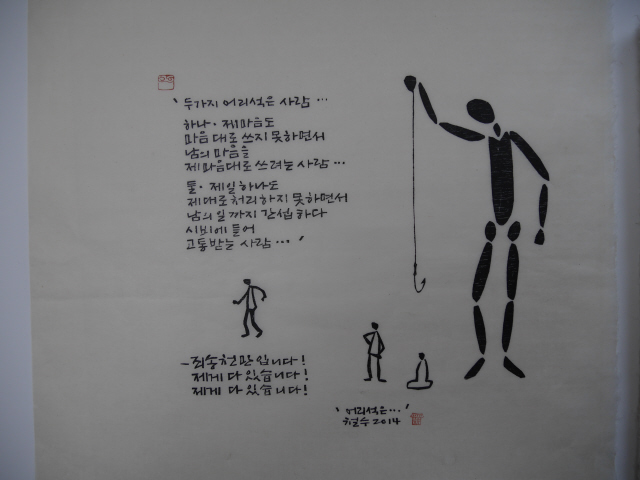 '두가지 어리석은 사람…
하나. 제마음도
마음대로 쓰지 못하면서
남의 마음을
제마음대로 쓰려는 사람…
둘. 제일 하나도
제대로 처리하지 못하면서
남의 일까지 간섭하다
시비에 들어
고통받는 사람…'
-죄송천만입니다!
제게 다 있습니다!
제게 다 있습니다!
'어리석은…'
철수 2014